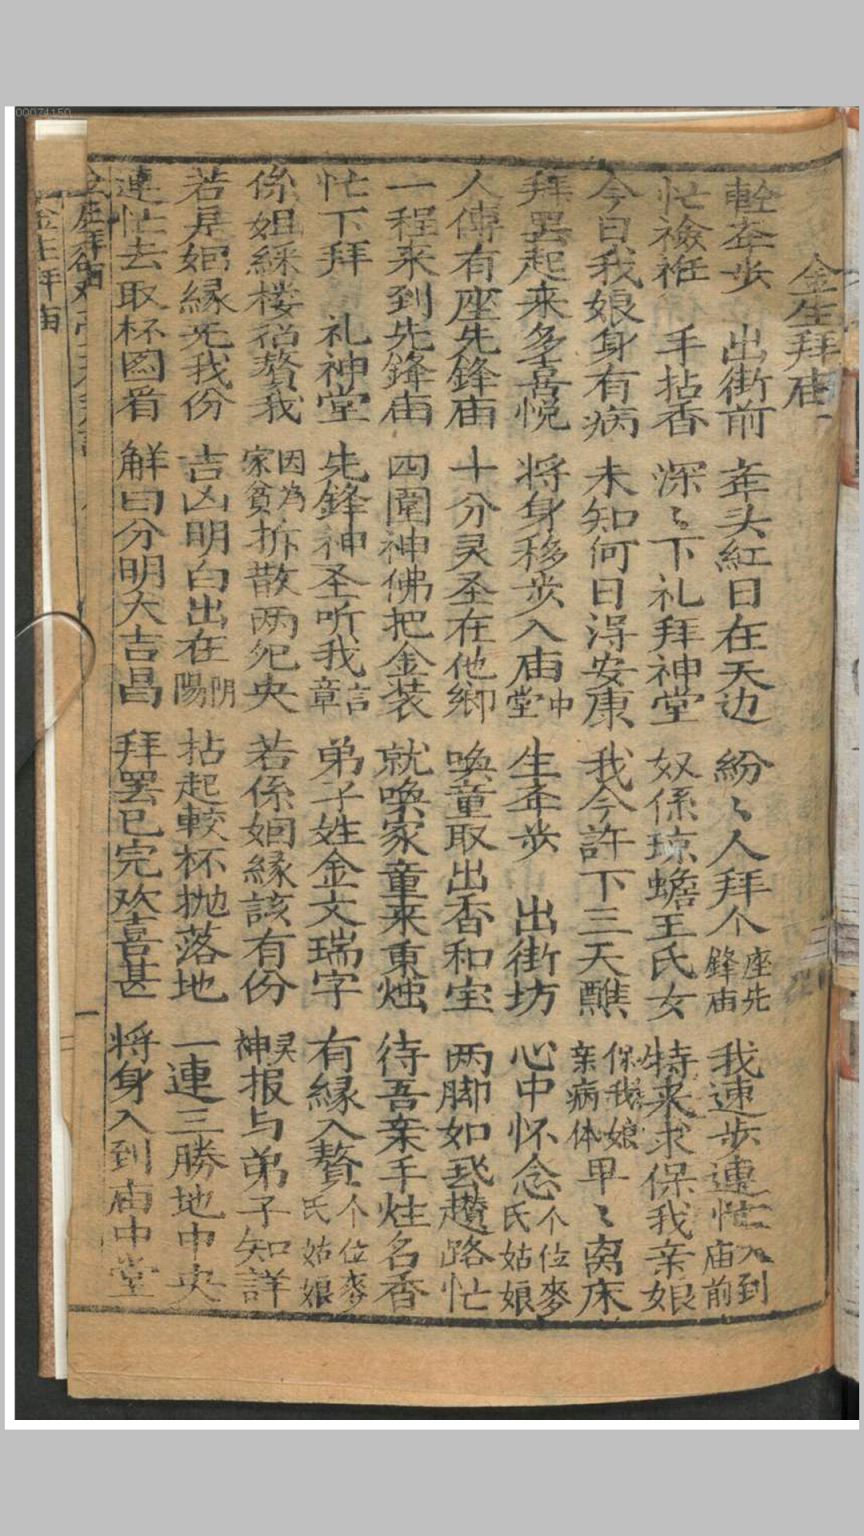 金生拜庙
輕奔步　出街前　奔头紅日在天边　紛〻人拜个座先鋒庙　我連步連忙入到庙前
忙襝袵　手拈香　深〻下礼拜神堂　奴係琼蟾王氏女　特来求保我亲娘
今日我娘身有病　未知何日淂安康　我今許下三天醮　保我娘亲病体早〻离床
拜罢起来多喜悦　将身移步入庙中堂　生奔步　出街坊　心中怀念个位麥氏姑娘
人傳有座先鋒庙　十分灵圣在他鄉　喚童取出香和宝　两脚如飛趲路忙
一程来到先鋒庙　四圍神佛把金装　就喚家童来東烛　待吾亲手炷名香
忙下拜　礼神堂　先鋒神圣听我言章　弟子姓金文瑞字　有緣入贅个位麥氏姑娘
係姐綵楼招贅我　因為家貧拆散两鸳央　若係姻緣該有份　灵神报与弟子知詳
若是姻緣无我份　吉凶明白出在阴陽　拈起較杯抛落地　一連三勝地中央
連忙去取杯圖看　觧曰分明大吉昌　拜罢已完欢喜甚　将身入到庙中堂
金生拜庙
一